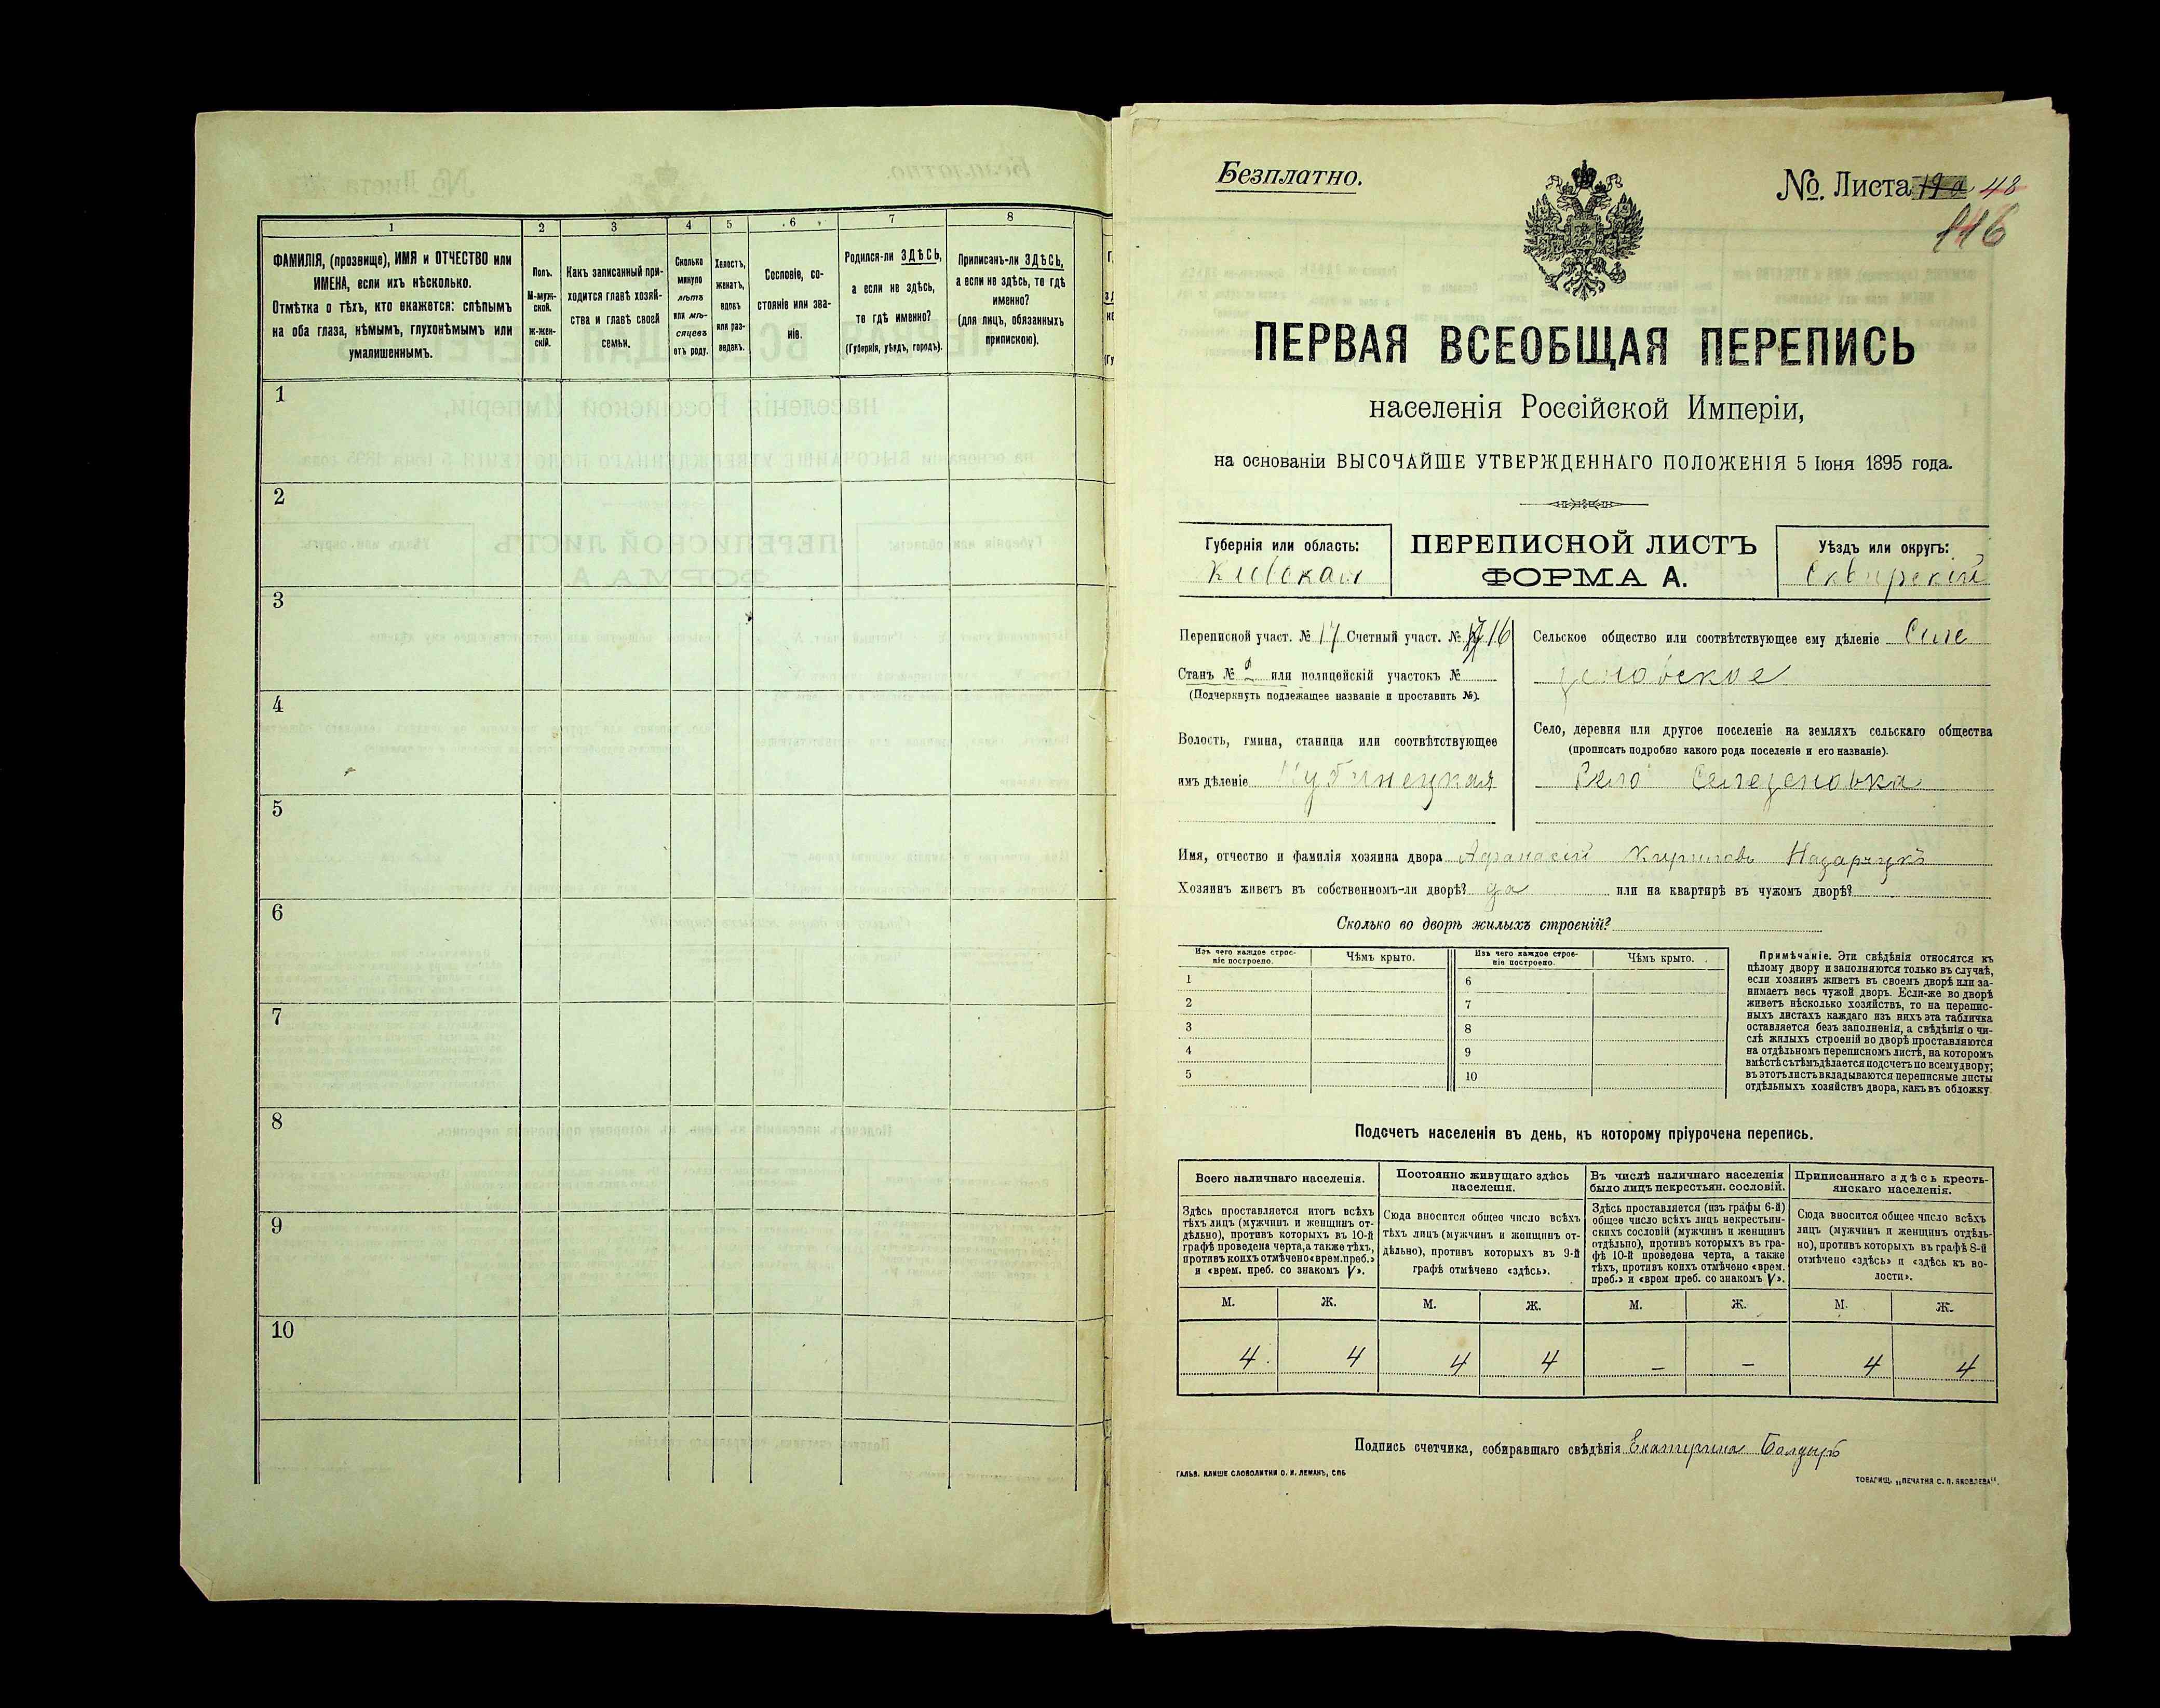 1 2 3 4 5 6 7 8
ФАМИЛІЯ, (прозвище), ИМЯ и ОТЧЕСТВО или
ИМЕНА, если ихъ нѣсколько.
Отмѣтка о тѣхъ, кто окажется: слѣпымъ
на оба глаза, нѣмымъ, глухонѣмымъ или
умалишеннымъ.
Полъ.
М-муж-
ской.
ж-жен-
скій.
Какъ записанный при-
ходится главѣ хозяй-
ства и главѣ своей
семьи.
Сколько
минуло
лѣтъ
или мѣ-
сяцевъ
отъ роду.
Холостъ,
женатъ,
вдовъ
или раз-
веденъ.
Сословіе, со-
стояніе или зва-
ніе.
Родился-ли ЗДѢСЬ,
а если не здѣсь,
то гдѣ именно?
(Губернія, уѣздъ, городъ).
Приписанъ-ли ЗДѢСЬ,
а если не здѣсь, то гдѣ
именно?
(для лицъ, обязанныхъ
припискою).
1
2
3
4
5
6
7
8
9
10
Безплатно.
№. Листа 19 а 48
116
ПЕРВАЯ ВСЕОБЩАЯ ПЕРЕПИСЬ
населенія Россійской Имперіи,
на основаніи ВЫСОЧАЙШЕ УТВЕРЖДЕННАГО ПОЛОЖЕНІЯ 5 Іюня 1895 года.
Губернія или область:
Кіевская
ПЕРЕПИСНОЙ ЛИСТЪ
ФОРМА А.
Уѣздъ или округъ:
Сквирскій
Переписной участ. № 17 Счетный участ. № 16
Станъ № 2 или полицейскій участокъ №
(Подчеркнуть подлежащее названіе и проставить №).
Волость, гмина, станица или соотвѣтствующее
имъ дѣленіе Кубинецкая
Сельское общество или соотвѣтствующее ему дѣленіе Селе
зеновское
Село, деревня или другое поселеніе на земляхъ сельскаго общества
(прописать подробно какого рода поселеніе и его названіе).
Село Селезеновка
Имя, отчество и фамилія хозяина двора Афанасій Кириловъ Назарчукъ
Хозяинъ живетъ въ собственномъ-ли дворѣ? да или на квартирѣ въ чужомъ дворѣ?
Сколько во дворѣ жилыхъ строеній?
Изъ чего каждое строе-
ніе построено.
Чѣмъ крыто.
Изъ чего каждое строе-
ніе построено.
Чѣмъ крыто.
1 6
2 7
3 8
4 9
5 10
Примѣчаніе. Эти свѣдѣнія относятся къ
цѣлому двору и заполняются только въ случаѣ,
если хозяинъ живетъ въ своемъ дворѣ или за-
нимаетъ весь чужой дворъ. Если-же во дворѣ
живетъ нѣсколько хозяйствъ, то на перепис-
ныхъ листахъ каждаго изъ нихъ эта табличка
оставляется безъ заполненія, а свѣдѣнія о чи-
слѣ жилыхъ строеній во дворѣ проставляются
на отдѣльномъ переписномъ листѣ, на которомъ
вмѣстѣ съ тѣмъ дѣлается подсчетъ по всему двору;
въ этотъ листъ вкладываются переписные листы
отдѣльныхъ хозяйствъ двора, какъ въ обложку.
Подсчетъ населенія въ день, къ которому пріурочена перепись.
Всего наличнаго населенія.
Здѣсь проставляется итогъ всѣхъ
тѣхъ лицъ (мужчинъ и женщинъ от-
дѣльно), противъ которыхъ въ 10-й
графѣ проведена черта, а также тѣхъ,
противъ коихъ отмѣчено «врем. преб.»
и «врем. преб. со знакомъ V».
Постоянно живущаго здѣсь
населенія.
Сюда вносится общее число всѣхъ
тѣхъ лицъ (мужчинъ и женщинъ от-
дѣльно), противъ которыхъ въ 9-й
графѣ отмѣчено «здѣсь».
Въ числѣ наличнаго населенія
было лицъ некрестьян. сословій.
Здѣсь проставляется (изъ графы 6-й)
общее число всѣхъ лицъ некрестьян-
скихъ сословій (мужчинъ и женщинъ
отдѣльно), противъ которыхъ въ гра-
фѣ 10-й проведена черта, а также
тѣхъ, противъ коихъ отмѣчено «врем.
преб.» и «врем преб. со знакомъ V».
Приписаннаго здѣсь кресть-
янскаго населенія.
Сюда вносится общее число всѣхъ
лицъ (мужчинъ и женщинъ отдѣль-
но), противъ которыхъ въ графѣ 8-й
отмѣчено «здѣсь» и «здѣсь къ во-
лости».
М. Ж. М. Ж. М. Ж. М. Ж.
4 4 4 4 - - 4 4
Подпись счетчика, собиравшаго свѣдѣнія Екатерина Балдыръ
ГАЛЬВ. КЛИШЕ СЛОВОЛИТНИ О. И. ЛЕМАНЪ, СПБ
ТОВАРИЩ. „ПЕЧАТНЯ С. П. ЯКОВЛЕВА".